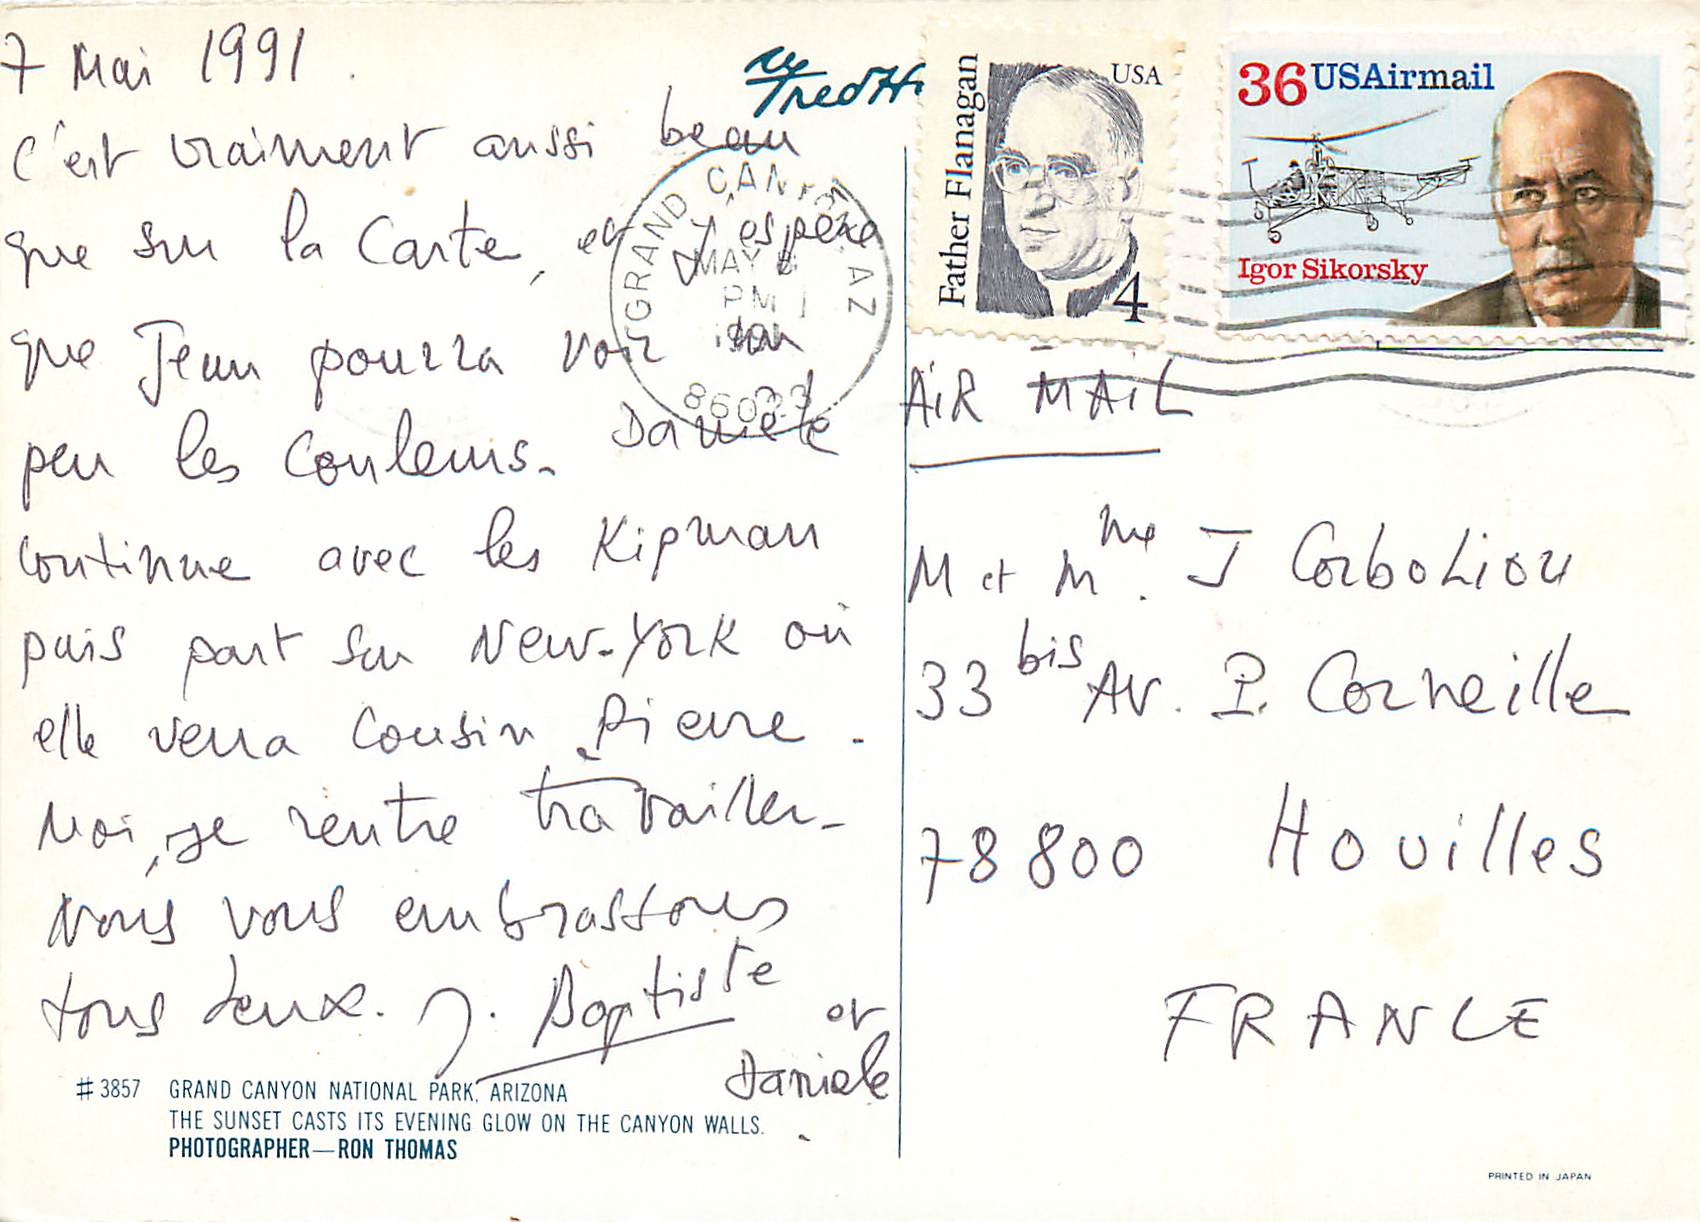 7 Mai 1991
C'est vraiment aussi beau
que sur la Carte, et j'espère
que Jean pourra voir un
peu les Couleurs. Danièle
continue avec les Kipman
puis part sur New-York où
elle verra Cousin Pierre.
Moi, je rentre travailler.
Nous vous embrassons
tous deux. J. Baptiste et
Danièle
# 3857 GRAND CANYON NATIONAL PARK, ARIZONA
THE SUNSET CASTS ITS EVENING GLOW ON THE CANYON WALLS.
PHOTOGRAPHER—RON THOMAS
Fred H
GRAND CANYON, AZ
MAY
PM
86023
Father Flanagan
USA
4
36 USAirmail
Igor Sikorsky
AIR MAIL
M et Mme. J Corboliou
33 bis Av. P. Corneille
78800 Houilles
FRANCE
PRINTED IN JAPAN